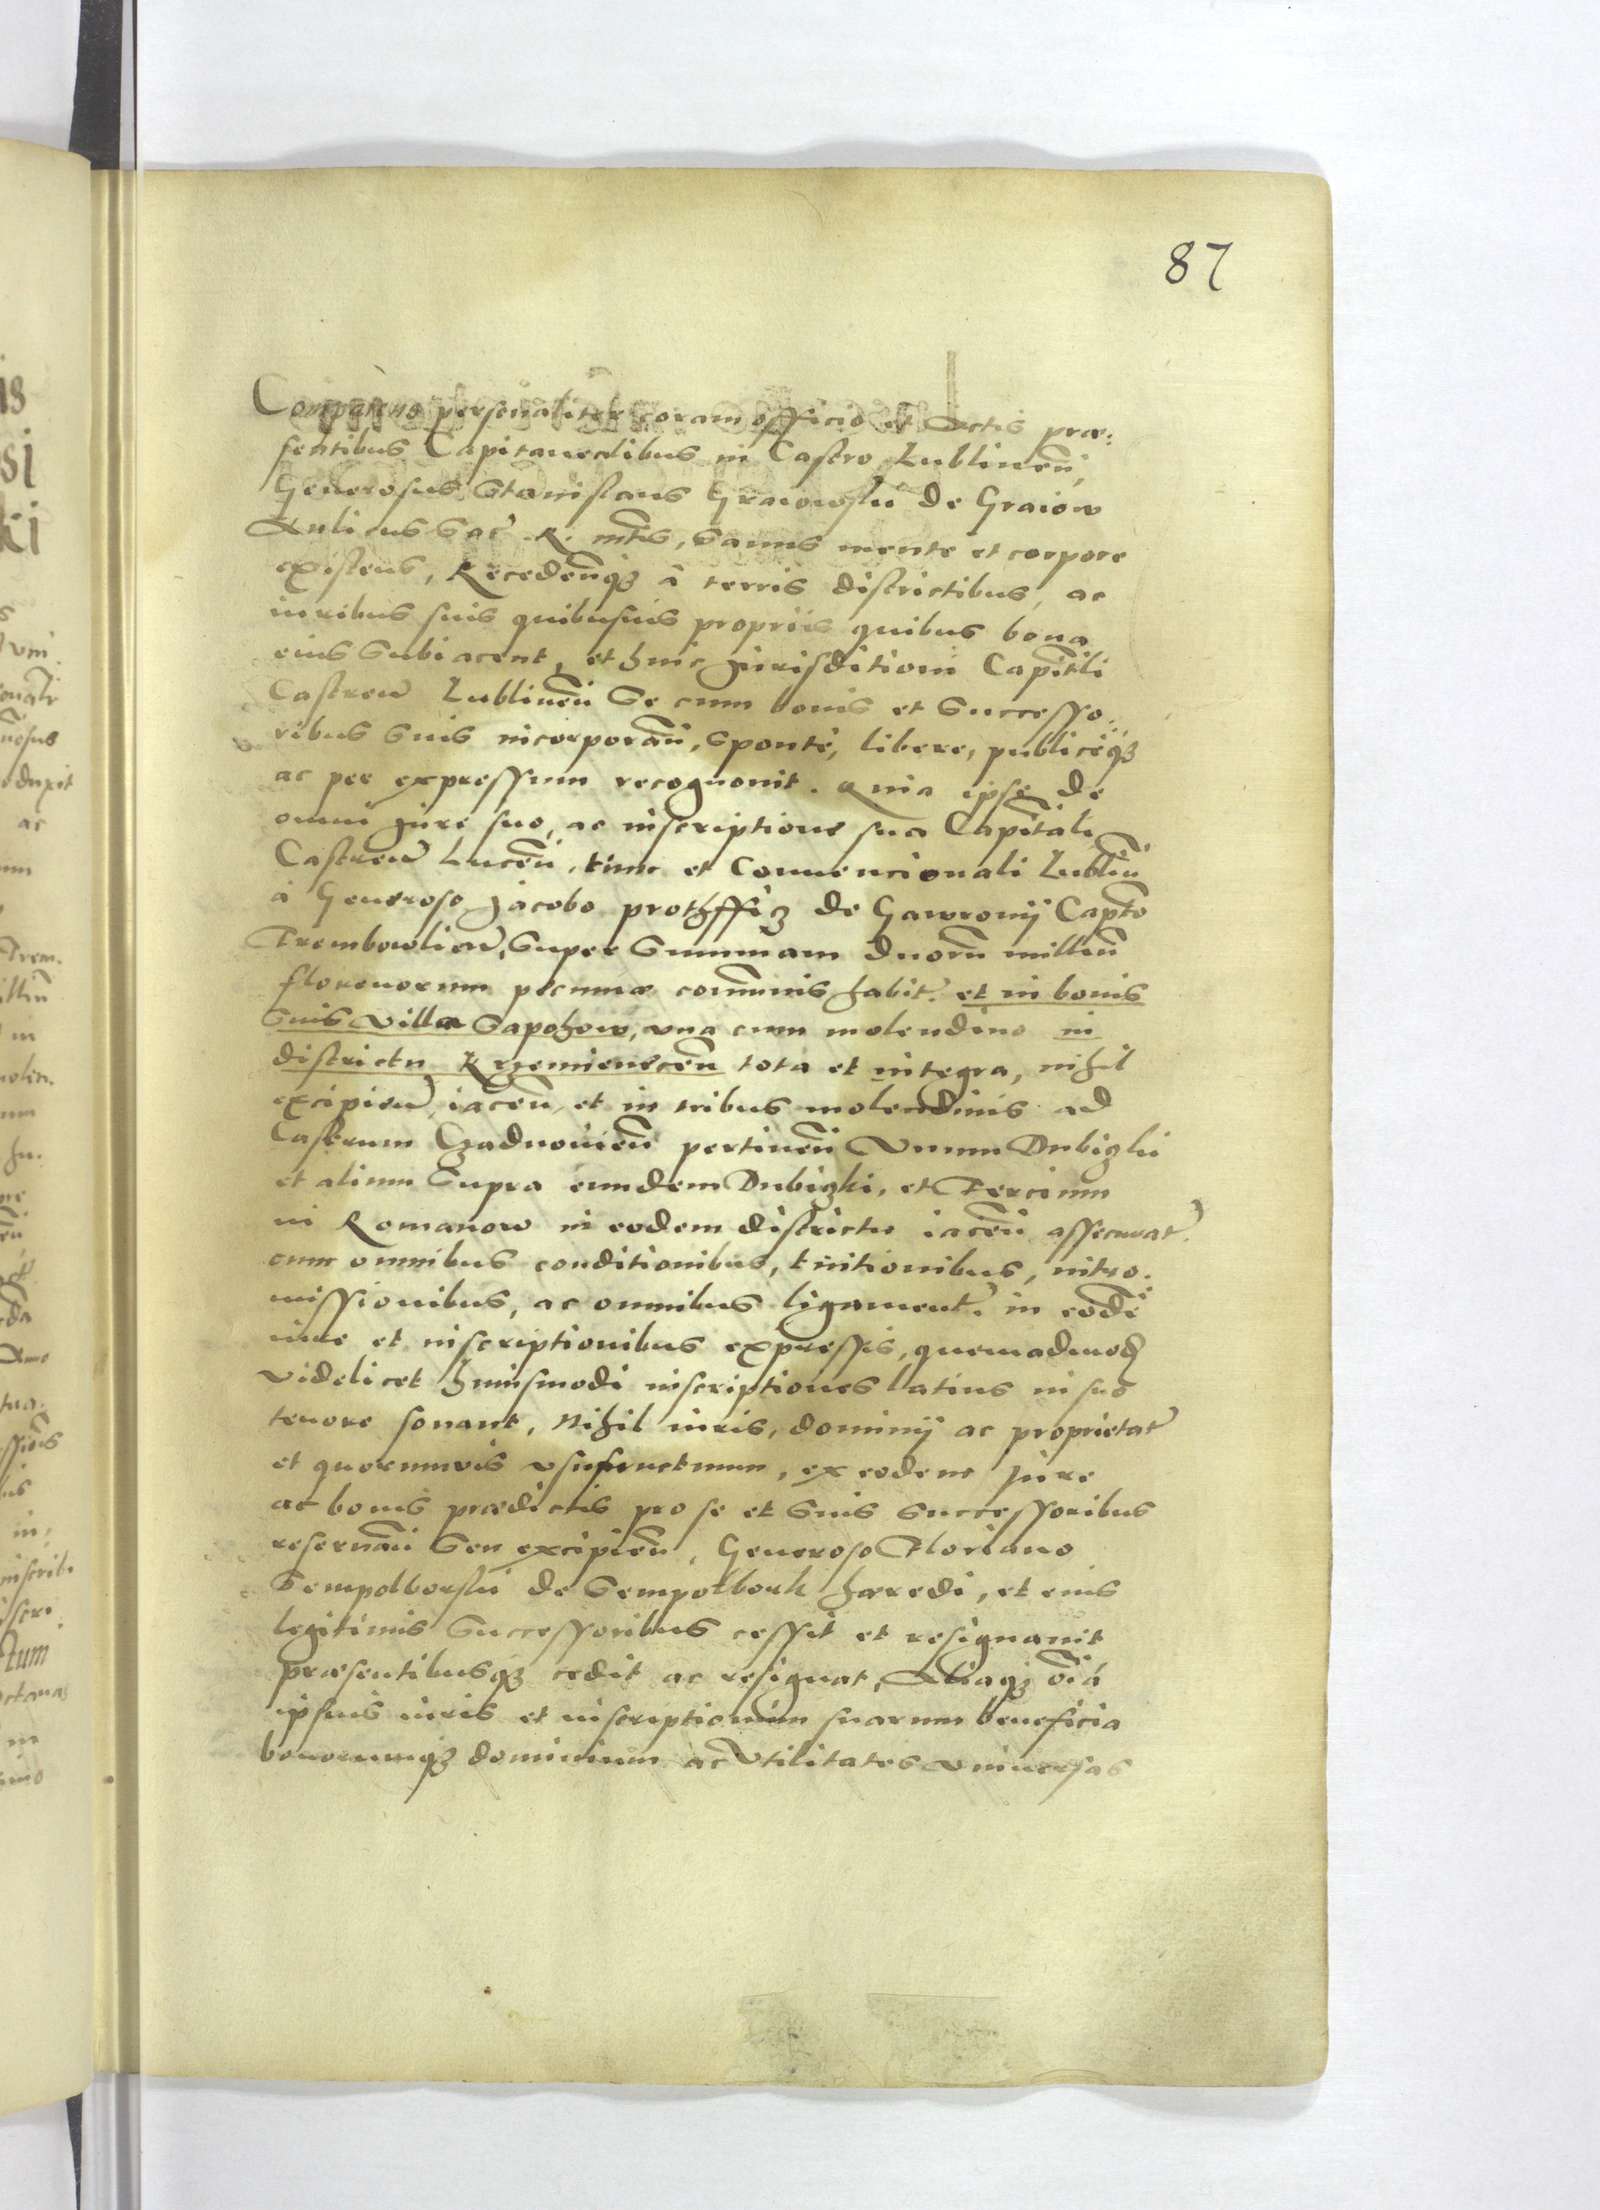 87
Comparens personaliter coram officio et Actis præ:
sentibus Capitanealibus in Castro Lublineñ,
Generosus Stanislaus Graiowski de Graiow
Aulicus Sac̃ R. mt̃is, Sanus mente et corpore
existens, Recedeñq3 à terris districtibus, ac
iuribus suis quibusuis propriis quibus bona
eius Subiacent, et huic Jurisditioni Capit̃li
Castreñ Lublineñ Se cum bonis et Successo:
ribus Suis incorporañ, Sponte, libere, publiceq3
ac per expressum recognouit. Quia ipse de
omni Jure suo, ac inscriptione sua Capit̃ali
Castreñ Luceñ, tunc et Conuencionali Lubliñ
à Generoso Jacobo de Gawronij Capt̃o
Trembowlieñ, Super Summam duorũ milliũ
florenorum pecuniæ com̃unis habit̃. et in bonis
Suis Villa Sapohow, vna cum molendino in
districtu Krzemieneceñ tota et integra, nihil
excipieñ, iaceñ, et in tribus molendinis ad
Castrum pertineñ Vnum Dubizki
et alium Supra eundem Dubizki, et Tercium
in Romanow in eodem districtu iaceñ assecurat̃.
cum omnibus conditionibus, tuitionibus, intro:
missionibus, ac omnibus ligament̃. in eodẽ
iure et inscriptionibus expressis, quemadmod̃
videlicet huiusmodi inscriptiones latius in suo
tenore sonant, Nihil iuris, dominij ac proprietat̃
et quorumuis vsufructuum, ex eodem Jure
ac bonis prædictis pro se et Suis Successoribus
reseruañ Seu excipieñ, Generoso Floriano
Sempolborski de Sempolbork hæredi, et eius
legitimis Successoribus cessit et resignauit
præsentibusq3 cedit ac resignat, Aliaq3 õia
ipsius iuris et inscriptionum suarum beneficia
bonorumq3 dominium ac Vtilitates vniuersas